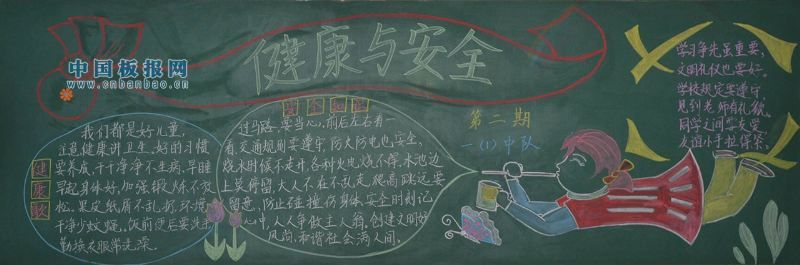 健康与安全
中国板报网
www.cnbanbao.cn
健康歌
我们都是好儿童,
注意健康讲卫生,好的习惯
要养成,干干净净不生病,早睡
早起身体好,加强锻炼不放
松。果皮纸屑不乱扔,环境
干净少蚊蝇。饭前便后要洗手
勤换衣服常洗澡。
过马路,要当心,前后左右看一
看,交通规则要遵守,防火防电也安全,
烧水时候不走开,各种火电烧不得,水池边
上莫停留,大人不在不乱走,爬高跳远要
留意,防止碰撞伤身体,安全时刻记
心中,人人争做主人翁,创建文明好
风尚,和谐社会满人间。
第二期
一(1)中队
学习争先虽重要,
文明礼仪也要好。
学校规定要遵守,
见到老师有礼貌,
同学之间要友爱
友谊小手拉得紧。